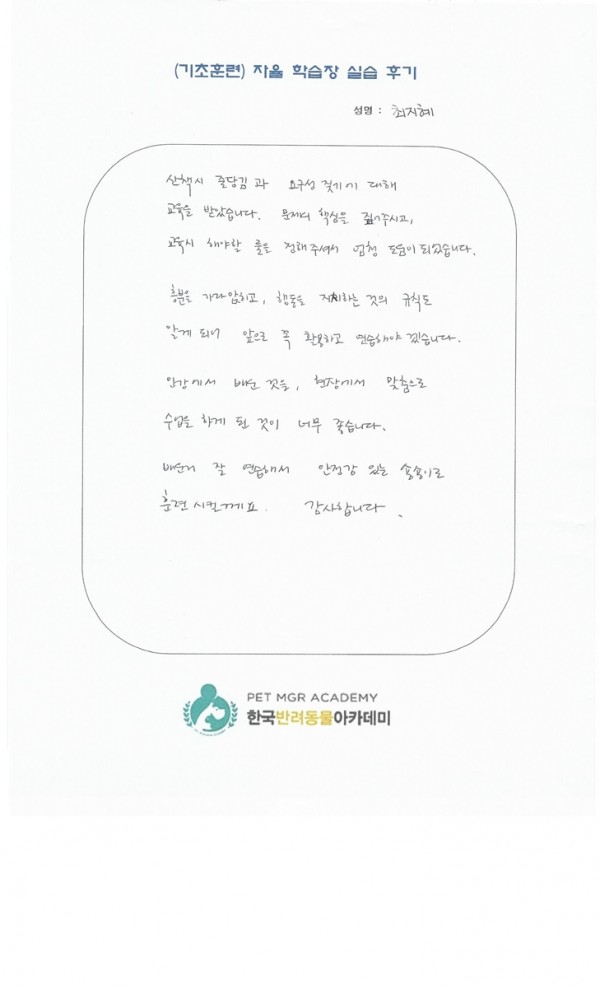 (기초훈련) 자율 학습장 실습 후기
성명 : 최지혜
산책시 줄당김과 요구성 짖기에 대해
교육을 받았습니다. 문제의 핵심을 짚어주시고,
교육시 해야할 룰을 정해주셔서 엄청 도움이 되었습니다.
흥분을 가라앉히고, 행동을 하는 것의 규칙도
알게 되어 앞으로 꼭 활용하고 연습해야 겠습니다.
인강에서 배운 것을, 현장에서 맞춤으로
수업을 하게 된 것이 너무 좋습니다.
배운거 잘 연습해서 안정감 있는 송송이로
훈련시킬께요. 감사합니다.
PET MGR ACADEMY
한국반려동물아카데미